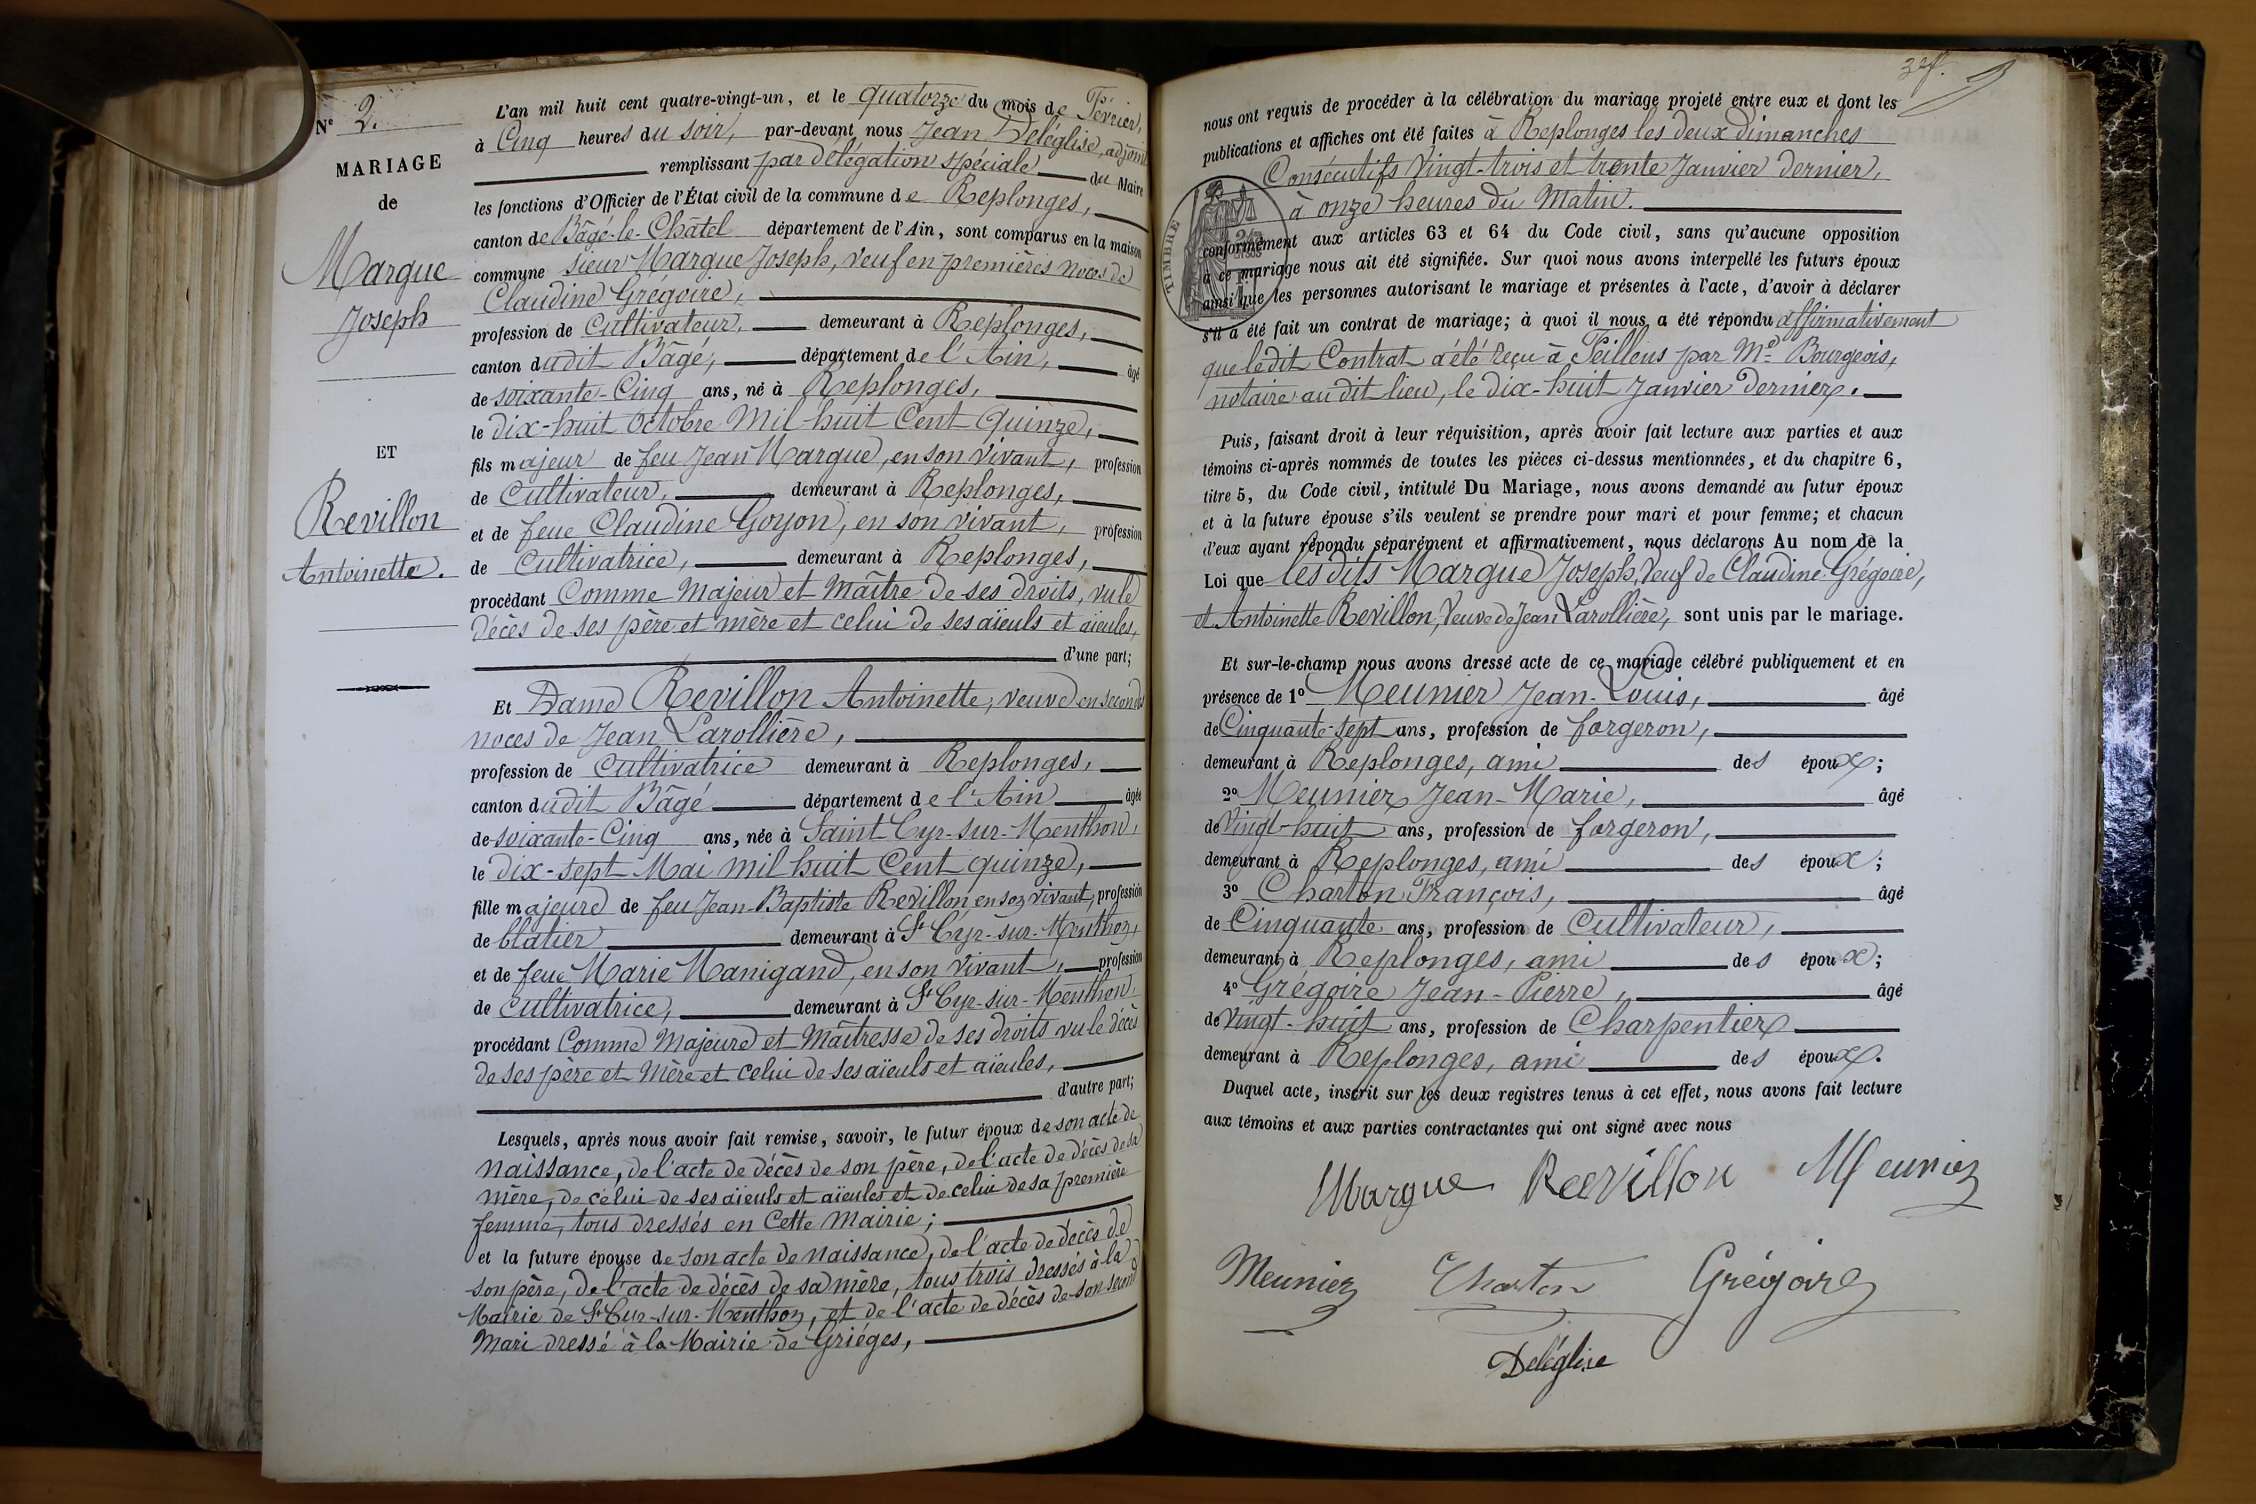 N° 2.
MARIAGE
de
Margue
Joseph
ET
Revillon
Antoinette.
L'an mil huit cent quatre-vingt-un, et le quatorze du mois de Février,
à Cinq heures du soir, par-devant nous Jean Deléglise, adjoint
remplissant par délégation spéciale du Maire
les fonctions d'Officier de l'État civil de la commune de Replonges,
canton de Bâgé-le-Châtel département de l'Ain, sont comparus en la maison
commune sieur Margue Joseph, veuf en premières noces de
Claudine Grégoire,
profession de Cultivateur, demeurant à Replonges,
canton dudit Bâgé, département de l'Ain, âgé
de soixante-Cinq ans, né à Replonges,
le dix-huit Octobre Mil huit Cent quinze,
fils majeur de feu Jean Margue, en son vivant, profession
de Cultivateur, demeurant à Replonges,
et de feue Claudine Goyon, en son vivant, profession
de Cultivatrice, demeurant à Replonges,
procédant Comme Majeur et Maître de ses droits, vu le
décès de ses père et mère et celui de ses aïeuls et aïeules,
d'une part;
Et Dame Revillon Antoinette, veuve en secondes
noces de Jean Larollière,
profession de Cultivatrice demeurant à Replonges,
canton dudit Bâgé département de l'Ain âgée
de soixante-Cinq ans, née à Saint Cyr-sur-Menthon,
le dix-sept Mai mil huit Cent quinze,
fille majeure de feu Jean-Baptiste Revillon, en son vivant, profession
de blatier demeurant à St Cyr-sur-Menthon,
et de feue Marie Manigand, en son vivant, profession
de cultivatrice, demeurant à St Cyr-sur-Menthon,
procédant Comme Majeure et Maîtresse de ses droits vu le décès
de ses père et Mère et celui de ses aïeuls et aïeules,
d'autre part;
Lesquels, après nous avoir fait remise, savoir, le futur époux de son acte de
naissance, de l'acte de décès de son père, de l'acte de décès de sa
mère, de celui de ses aïeuls et aïeules et de celui de sa première
femme, tous dressés en Cette Mairie;
et la future épouse de son acte de naissance, de l'acte de décès de
son père, de l'acte de décès de sa mère, tous trois dressés à la
Mairie de St Cyr-sur-Menthon, et de l'acte de décès de son second
Mari dressé à la Mairie de Griéges,
nous ont requis de procéder à la célébration du mariage projeté entre eux et dont les
publications et affiches ont été faites à Replonges les deux dimanches
Consécutifs Vingt-trois et trente Janvier dernier,
à onze heures du Matin.
TIMBRE
conformément aux articles 63 et 64 du Code civil, sans qu'aucune opposition
à ce mariage nous ait été signifiée. Sur quoi nous avons interpellé les futurs époux
ainsi que les personnes autorisant le mariage et présentes à l'acte, d'avoir à déclarer
s'il a été fait un contrat de mariage; à quoi il nous a été répondu affirmativement
que ledit Contrat a été reçu à Feillens par Me Bourgeois,
notaire au dit lieu, le dix-huit Janvier dernier.
Puis, faisant droit à leur réquisition, après avoir fait lecture aux parties et aux
témoins ci-après nommés de toutes les pièces ci-dessus mentionnées, et du chapitre 6,
titre 5, du Code civil, intitulé Du Mariage, nous avons demandé au futur époux
et à la future épouse s'ils veulent se prendre pour mari et pour femme; et chacun
d'eux ayant répondu séparément et affirmativement, nous déclarons Au nom de la
Loi que lesdits Margue Joseph, Veuf de Claudine Grégoire,
et Antoinette Revillon, Veuve de Jean Larollière, sont unis par le mariage.
Et sur-le-champ nous avons dressé acte de ce mariage célébré publiquement et en
présence de 1° Meunier Jean-Louis, âgé
de Cinquante-sept ans, profession de forgeron,
demeurant à Replonges, ami des époux;
2° Meunier Jean-Marie, âgé
de Vingt-huit ans, profession de forgeron,
demeurant à Replonges, ami des époux;
3° Charton François, âgé
de Cinquante ans, profession de Cultivateur,
demeurant à Replonges, ami des époux;
4° Grégoire Jean-Pierre, âgé
de Vingt-huit ans, profession de Charpentier
demeurant à Replonges, ami des époux.
Duquel acte, inscrit sur les deux registres tenus à cet effet, nous avons fait lecture
aux témoins et aux parties contractantes qui ont signé avec nous
Margue Reevillon Meunier
Meunier Charton Grégoire
Deléglise